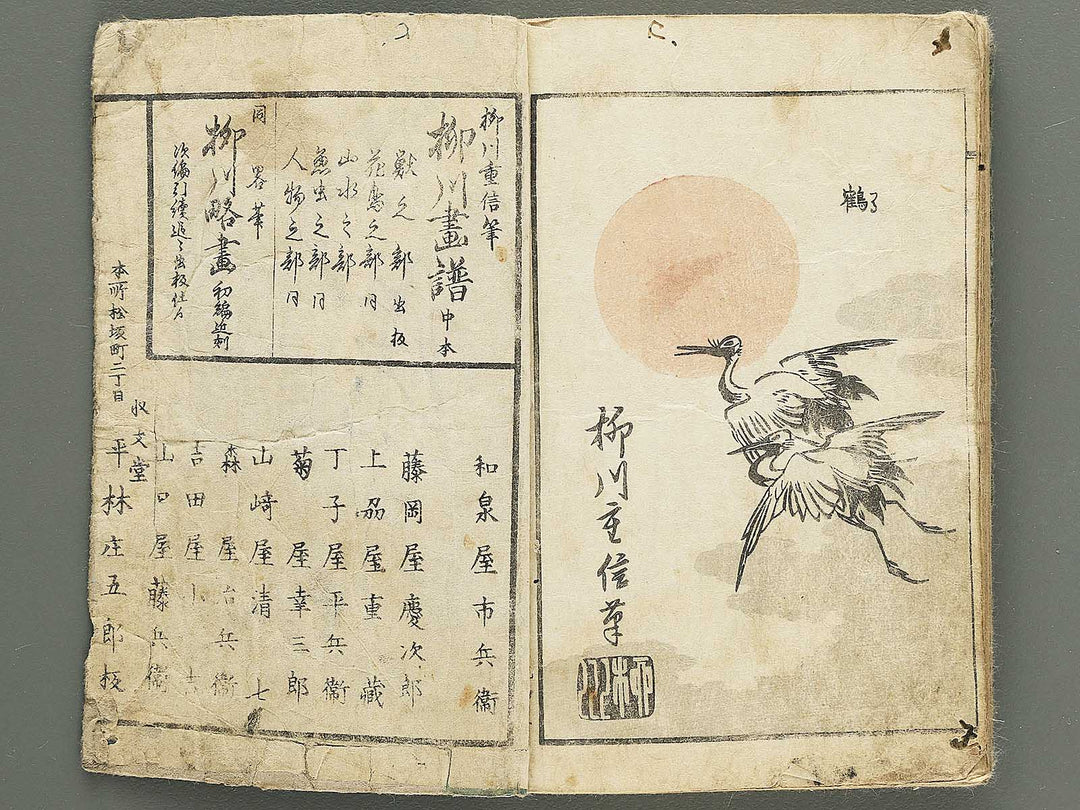 鶴
柳川重信筆
柳川
柳川重信筆
柳川畫譜 中本
獸之部 出板
花鳥之部 同
山水之部
魚虫之部 同
人物之部 同
同 畧筆
柳川略畫 初編近刻
次編引續追々出板仕候
和泉屋市兵衞
藤岡屋慶次郎
上州屋重藏
丁子屋平兵衞
菊屋幸三郎
山﨑屋清七
森屋治兵衞
吉田屋小吉
山口屋藤兵衞
本所松坂町二丁目
収文堂
平林庄五郎板